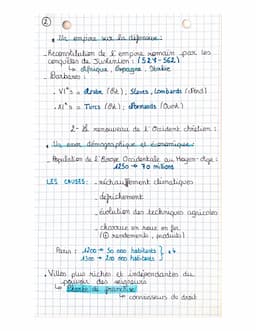 ②
• Un empire sur la défensive :
- Reconstitution de l'empire romain par les
conquêtes de Justinien : (527-562)
↳ Afrique, Espagne, Italie
- Barbares :
• VI°s = Arabe (Est) ; Slaves, Lombards (Nord)
• XI°s = Turcs (Est) ; Normands (Ouest)
2- Le renouveau de l'Occident chrétien :
• Un essor démographique et économique :
- Population de l'Europe Occidentale au Moyen-Âge :
1250 → 70 millions
LES CAUSES : - réchauffement climatiques
- défrichement
- évolution des techniques agricoles
- charrue en roue en fer
(⊕ rendements, produits)
Paris : 1200 → 50 000 habitants } × 4
1300 → 200 000 habitants
• Villes plus riches et indépendantes du
pouvoir des seigneurs
↳ Charte de franchise
↳ connaisseurs de droit